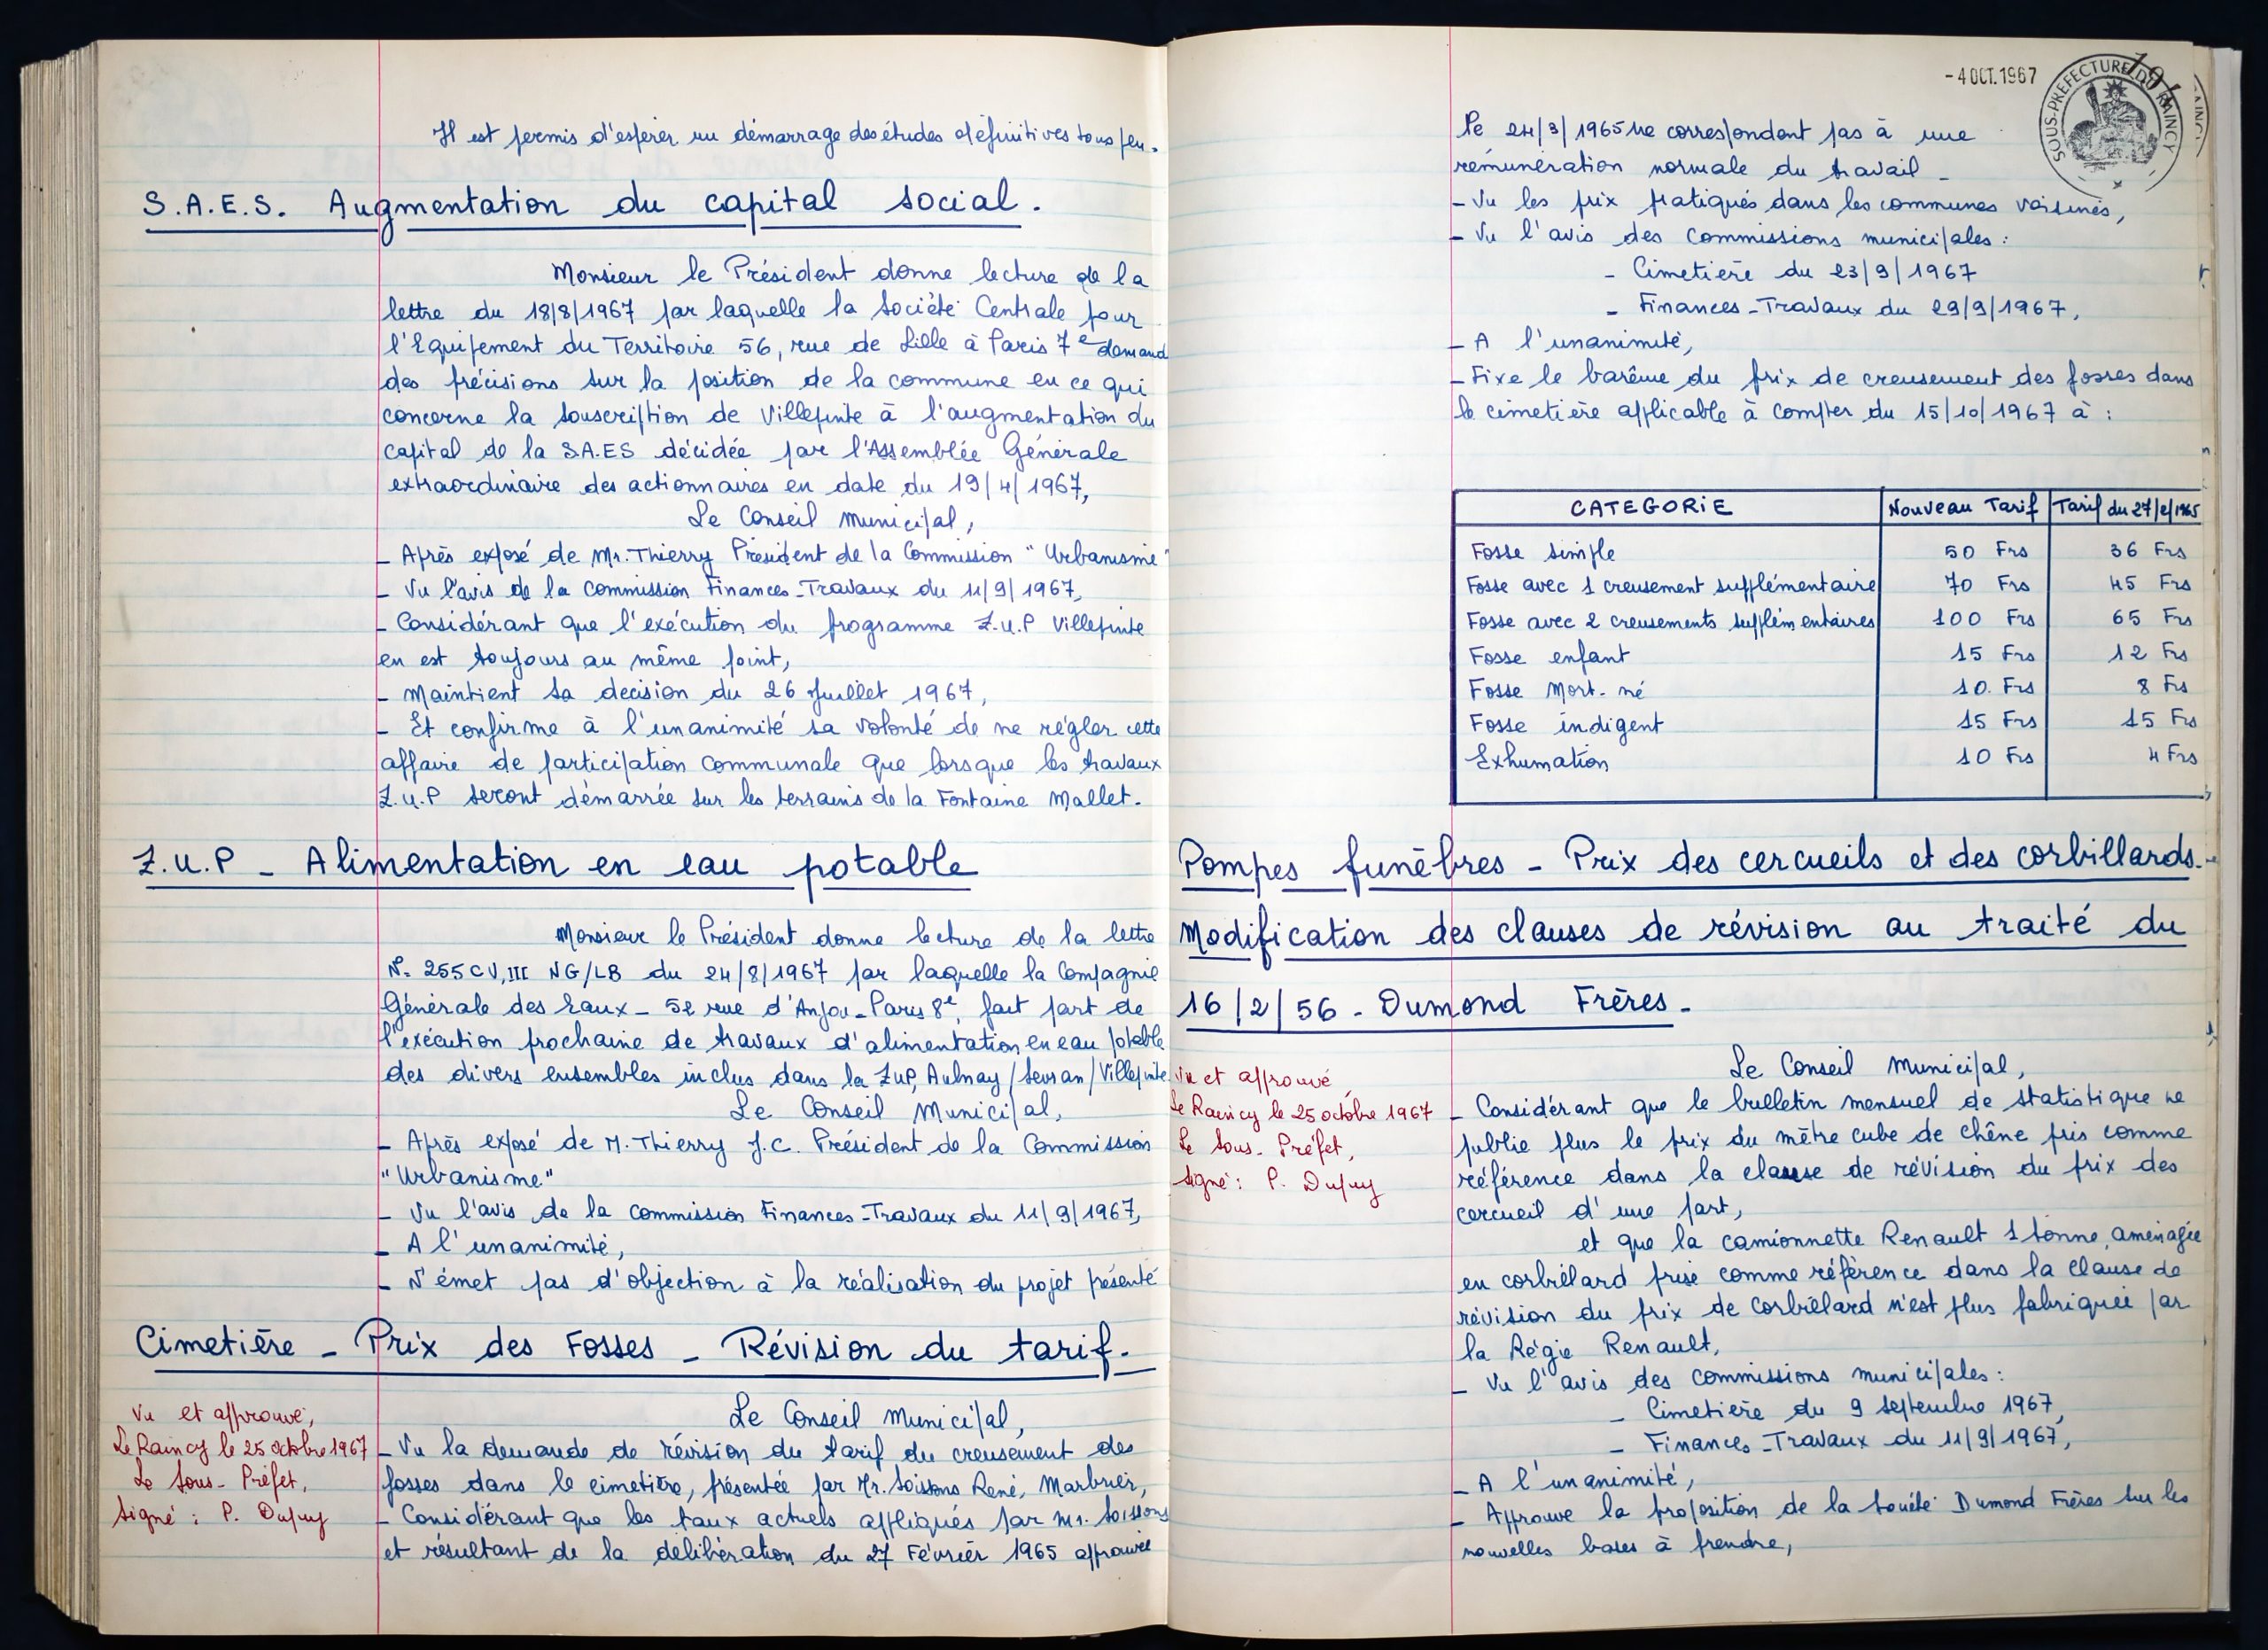 Il est permis d'espérer un démarrage des études définitives sous peu.
S.A.E.S. Augmentation du capital social.
Monsieur le Président donne lecture de la
lettre du 18/8/1967 par laquelle la Société Centrale pour
l'Equipement du Territoire 56, rue de Lille à Paris 7e demand
des précisions sur la position de la commune en ce qui
concerne la souscription de Villepinte à l'augmentation du
capital de la S.A.ES décidée par l'Assemblée Générale
extraordinaire des actionnaires en date du 19/4/1967,
Le Conseil Municipal,
- Après exposé de Mr. Thierry Président de la Commission "Urbanisme"
- Vu l'avis de la Commission Finances-Travaux du 11/9/1967,
- Considérant que l'exécution du programme Z.U.P Villepinte
en est toujours au même point,
- Maintient sa décision du 26 Juillet 1967,
- Et confirme à l'unanimité sa volonté de ne régler cette
affaire de participation communale que lorsque les travaux
Z.U.P seront démarrée sur les terrains de la Fontaine Mallet.
Z.U.P - Alimentation en eau potable
Monsieur le Président donne lecture de la lettre
N° 255 CV, III NG/LB du 24/8/1967 par laquelle la Compagnie
Générale des Eaux - 52 rue d'Anjou - Paris 8e, fait part de
l'exécution prochaine de travaux d'alimentation en eau potable
des divers ensembles inclus dans la ZUP, Aulnay/Sevran/Villepinte
Le Conseil Municipal,
- Après exposé de M. Thierry J.C. Président de la Commission
"Urbanisme"
- Vu l'avis de la commission Finances-Travaux du 11/9/1967,
- A l'unanimité,
- N'émet pas d'objection à la réalisation du projet présenté
Cimetière - Prix des Fosses - Révision du tarif.
Vu et approuvé,
Le Raincy le 25 octobre 1967
Le Sous-Préfet,
Signé : P. Dupuy
Le Conseil Municipal,
- Vu la demande de révision du tarif du creusement des
fosses dans le cimetière, présentée par Mr. Soissons René, Marbrier,
- Considérant que les taux actuels appliqués par Mr. Soissons
et résultant de la délibération du 27 Février 1965 approuvée
- 4 OCT. 1967
SOUS-PREFECTURE DU RAINCY
le 24/3/1965 ne correspondent pas à une
rémunération normale du travail -
- Vu les prix pratiqués dans les communes voisines,
- Vu l'avis des Commissions municipales :
- Cimetière du 23/9/1967
- Finances-Travaux du 29/9/1967,
- A l'unanimité,
- Fixe le barême du prix de creusement des fosses dans
le cimetière applicable à compter du 15/10/1967 à :
CATEGORIE Nouveau Tarif Tarif du 27/2/1965
Fosse simple 50 Frs 36 Frs
Fosse avec 1 creusement supplémentaire 70 Frs 45 Frs
Fosse avec 2 creusements supplémentaires 100 Frs 65 Frs
Fosse enfant 15 Frs 12 Frs
Fosse Mort-né 10. Frs 8 Frs
Fosse indigent 15 Frs 15 Frs
Exhumation 10 Frs 4 Frs
Pompes funèbres - Prix des cercueils et des corbillards.
Modification des clauses de révision au traité du
16/2/56 - Dumond Frères -
Vu et approuvé
Le Raincy le 25 octobre 1967
Le Sous-Préfet,
signé : P. Dupuy
Le Conseil Municipal,
- Considérant que le bulletin mensuel de statistique ne
publie plus le prix du mètre cube de chêne pris comme
référence dans la clause de révision du prix des
cercueil d'une part,
et que la camionnette Renault 1 tonne, aménagée
en corbillard prise comme référence dans la clause de
révision du prix de corbillard n'est plus fabriquée par
la Régie Renault,
- Vu l'avis des commissions municipales :
- Cimetière du 9 septembre 1967,
- Finances-Travaux du 11/9/1967,
- A l'unanimité,
- Approuve la proposition de la Société Dumond Frères sur les
nouvelles bases à prendre,